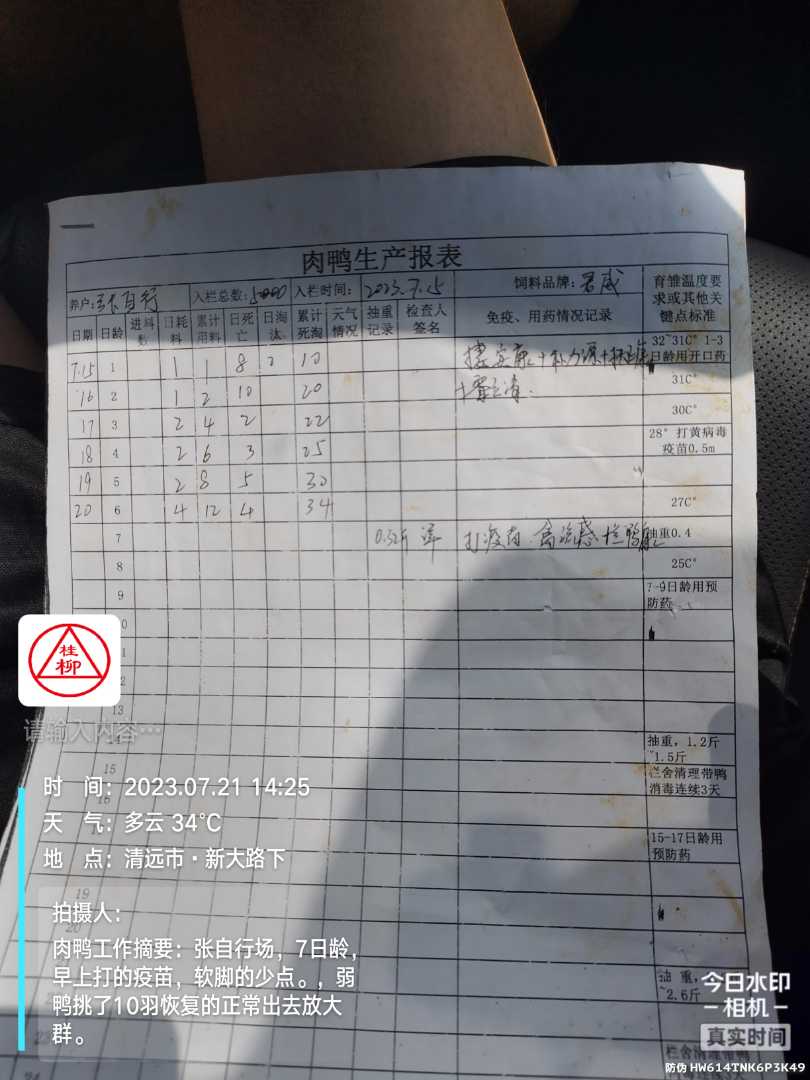 肉鸭生产报表
养户: 张自行 入栏总数: 5000 入栏时间: 2023.7.15 饲料品牌: 君威 育雏温度要求或其他关键点标准
日期 日龄 进料 日耗料 累计用料 日死亡 日淘汰 累计死淘 天气情况 抽重记录 检查人签名 免疫、用药情况记录
7.15 1 1 1 8 2 10 32~31C° 1-3日龄用开口药
16 2 1 2 10 20 31C°
17 3 2 4 2 22 30C°
18 4 2 6 3 25 28° 打黄病毒疫苗0.5m
19 5 2 8 5 30
20 6 4 12 4 34 27C°
7 打疫苗 禽流感 抽重0.4
8 25C°
9 7-9日龄用预防药
13
抽重,1.2斤~1.5斤
15 栏舍清理带鸭消毒连续3天
16
15-17日龄用预防药
19
20
抽 重,~2.6斤
栏舍清理带鸭
桂柳
请输入内容…
时 间: 2023.07.21 14:25
天 气: 多云 34℃
地 点: 清远市·新大路下
拍摄人:
肉鸭工作摘要: 张自行场,7日龄,
早上打的疫苗,软脚的少点。,弱
鸭挑了10羽恢复的正常出去放大
群。
今日水印
相机
真实时间
防伪 HW614TNK6P3K49